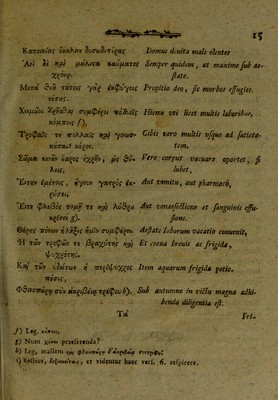 15
Κατοικίας ὄχλον δυσωδεστέρας Domus devita male olentes
Ἀεὶ δὲ καὶ μάλιστα καύματος Semper quidem, at maxime sub ae-
χρόνῳ. state.
Μετὰ Θεὸν τάτως γὰρ ἐκφύγεις Propitio deo, sic morbos effugies.
νόσους.
Χειμῶνι χρῆσθαι συμφέρει πολλοῖς Hieme uti licet multis laboribus,
κόποις f),
Τροφαῖς τε πολλαῖς καὶ Cibis vero multis vsque ad satieta-
κόρον. tem.
Σῶμα κενῶν ἔαρος ἐχρῆν, ὡς θέ- Vere corpus vacuare oportet, si
λεις, lubet,
Εἴτουν ἐμέτοις, ἤγουν γαστρὸς ἐκ- Aut vomitu, aut pharmacô,
κρίσει,
Εἴτε φλεβὸς τομῇ τε καὶ λύθρου Aut venaesectione et sanguinis effu-
κρίσει g). sione.
Θέρει πόνων ἄλυξις ἡμῖν συμφέρει. Aestate laborum vacatio conuenit,
Ἡ τῶν τροφῶν τε βραχύτης καὶ Et coena breuis ac frigida,
ψυχρότης.
Καὶ τῶν ὑδάτων ἡ περίψυχρος Item aquarum frigida potio.
πόσις,
Φθινοπώρῳ σὺν ἀκριβείᾳ τρέφου h). Sub autumno in victu magna adhi-
benda diligentia est.
Τὰ Fri-
f) Leg.
g) Num praeferenda?
h) Leg, mallem
i) et videntur haec vers. 6. respicere.